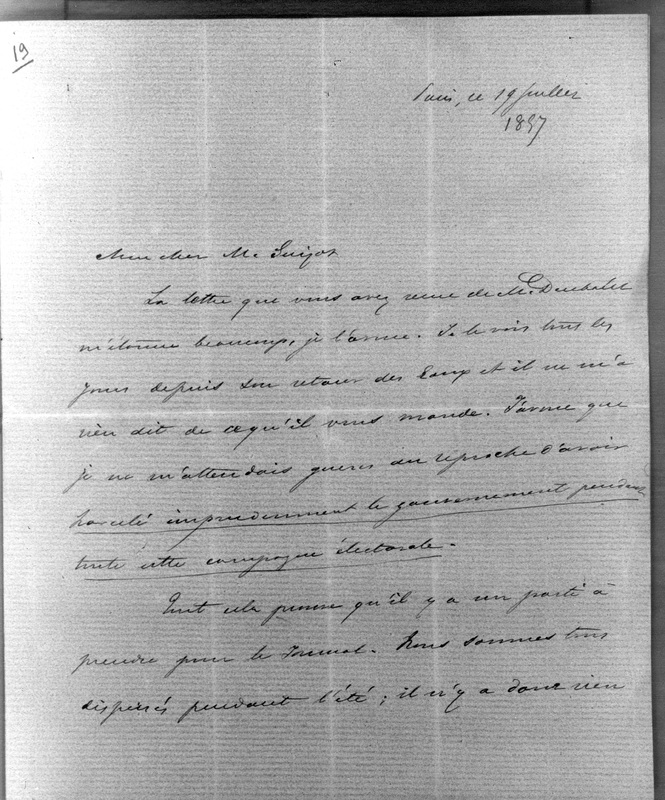 19
Paris, ce 19 Juillet
1857
Mon cher M. Guizot
La lettre que vous avez reçue de M. Duchatel
m'étonne beaucoup, je l'avoue. Je le vois tous les
jours depuis son retour des Eaux et il ne m'a
rien dit de ce qu'il vous mande. J'avoue que
je ne m'attendais guères au reproche d'avoir
harcelé imprudemment le gouvernement pendant
toute cette campagne électorale.
Tout cela prouve qu'il y a un parti à
prendre pour le Journal. Nous sommes tous
dispersés pendant l'été ; il n'y a donc rien